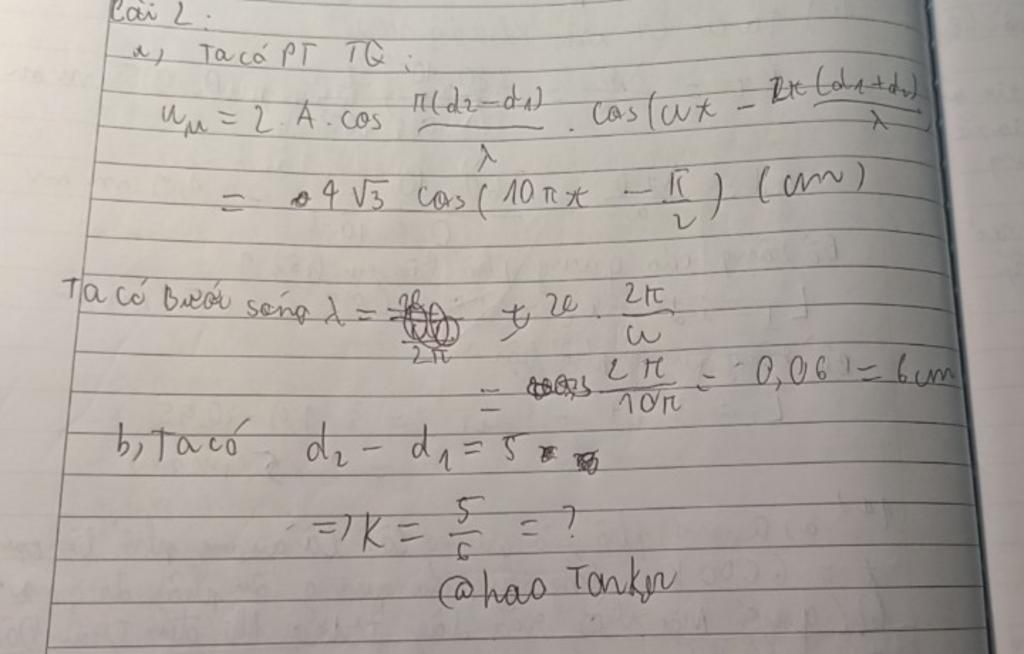 Bài 2:
a, Ta có PT TQ:
u_M = 2.A.cos π(d2-d1)/λ . cos(ωt - 2π(d1+d2)/λ
= 4√3 cos(10πt - π/2) (cm)
Ta có Bước sóng λ = . 2π/ω
= 2π/10π = 0,06 = 6cm
b, Ta có d2 - d1 = 5
=> K = 5/6 = ?
@hao Tanker